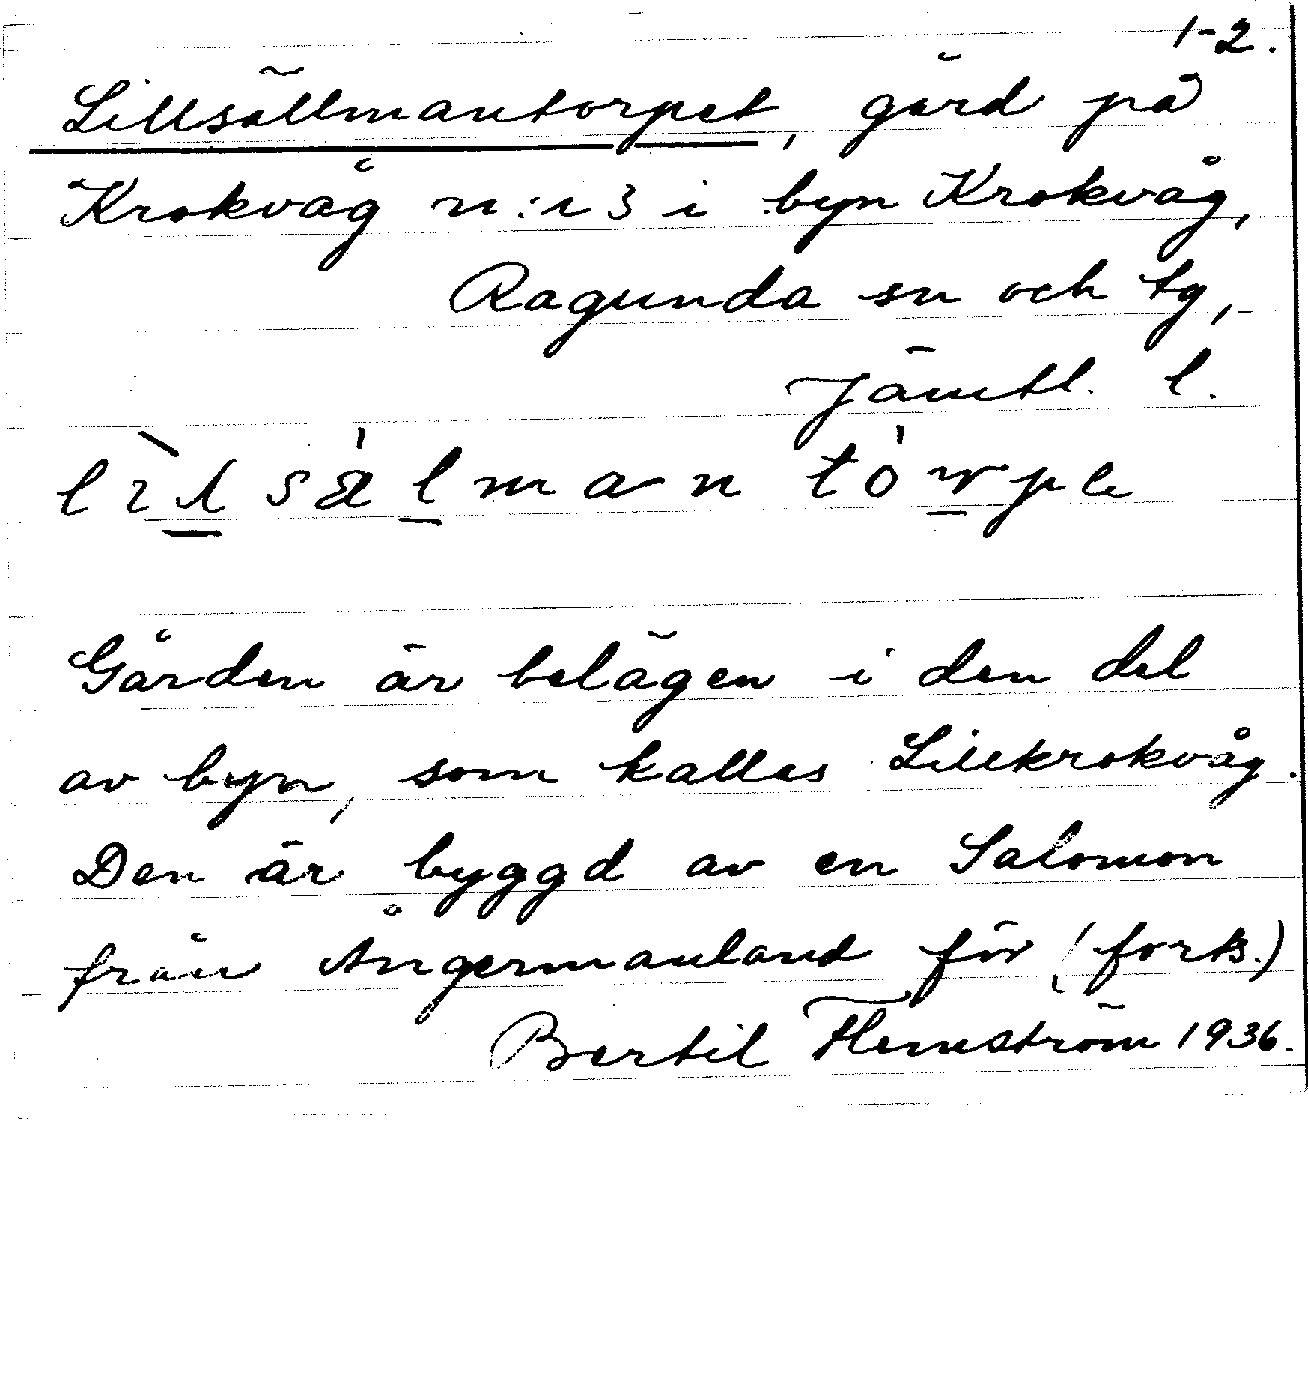 1-2.
Lillsällmantorpet, gård på
Krokvåg n:r 3 i byn Krokvåg,
Ragunda sn och tg,
Jämtl. l.
lìlsälman tórpe
Gården är belägen i den del
av byn, som kallas Lillkrokvåg.
Den är byggd av en Salomon
från Ångermanland för (forts.)
Bertil Flemström 1936.